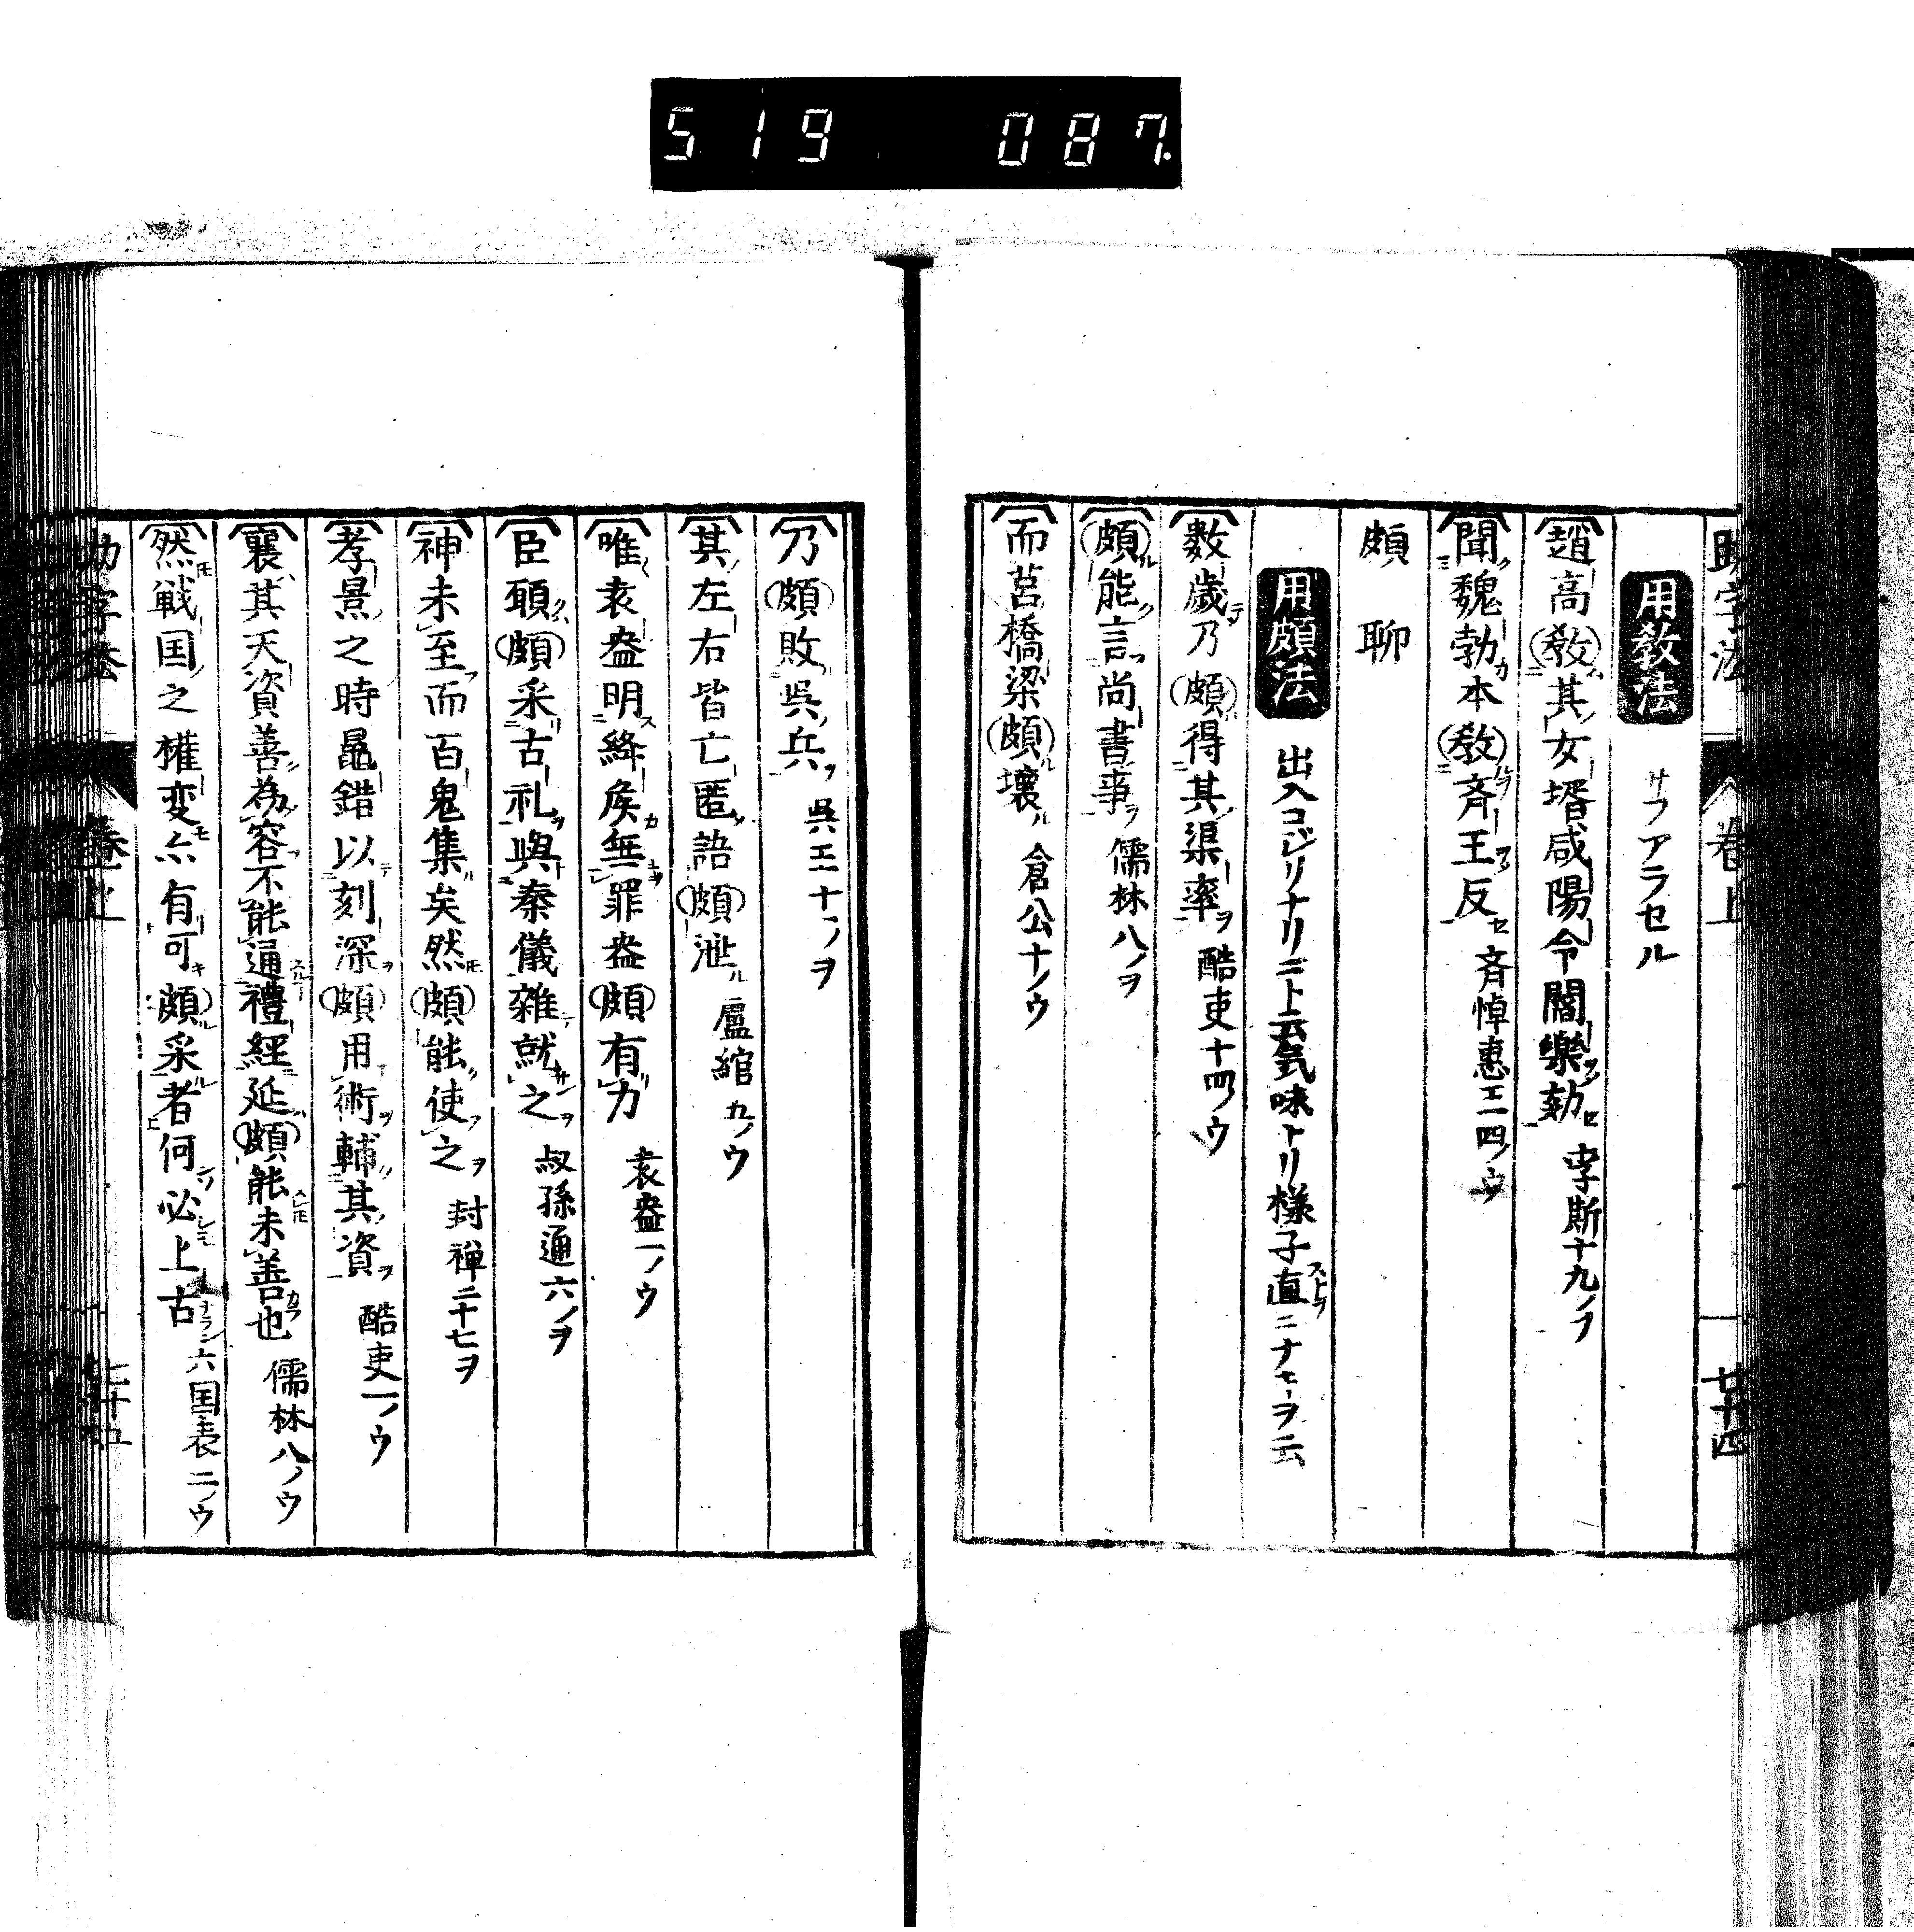 519 087.
助字法 卷上 七十四
用教法 サフアラセル
趙高教其女壻咸陽令閻樂劾 李斯十九ノフ
聞魏勃本教斉王反 斉悼惠王二四ノウ
頗 聊
用頗法 出入コジリナリニト云気味トリ様子直ニナセーヲ云
数歳乃頗得其渠率 酷吏十四ノウ
頗能言尚書事 儒林八ノヲ
而莒橋梁頗壞 倉公十ノウ
乃頗敗呉兵 呉王十ノヲ
其左右皆亡匿語頗泄 盧綰九ノウ
唯袁盎明絳矦無罪盎頗有力 袁盎一ノウ
臣願頗采古礼與秦儀雜就之 叔孫通六ノヲ
神未至而百鬼集矣然頗能使之 封禅二十七ヲ
孝景之時鼂錯以刻深頗用術輔其資 酷吏一ノウ
襄其天資善為容不能通禮経延頗能未善也 儒林八ノウ
然戦国之権変亦有可頗采者何必上古 六国表二ノウ
七十五